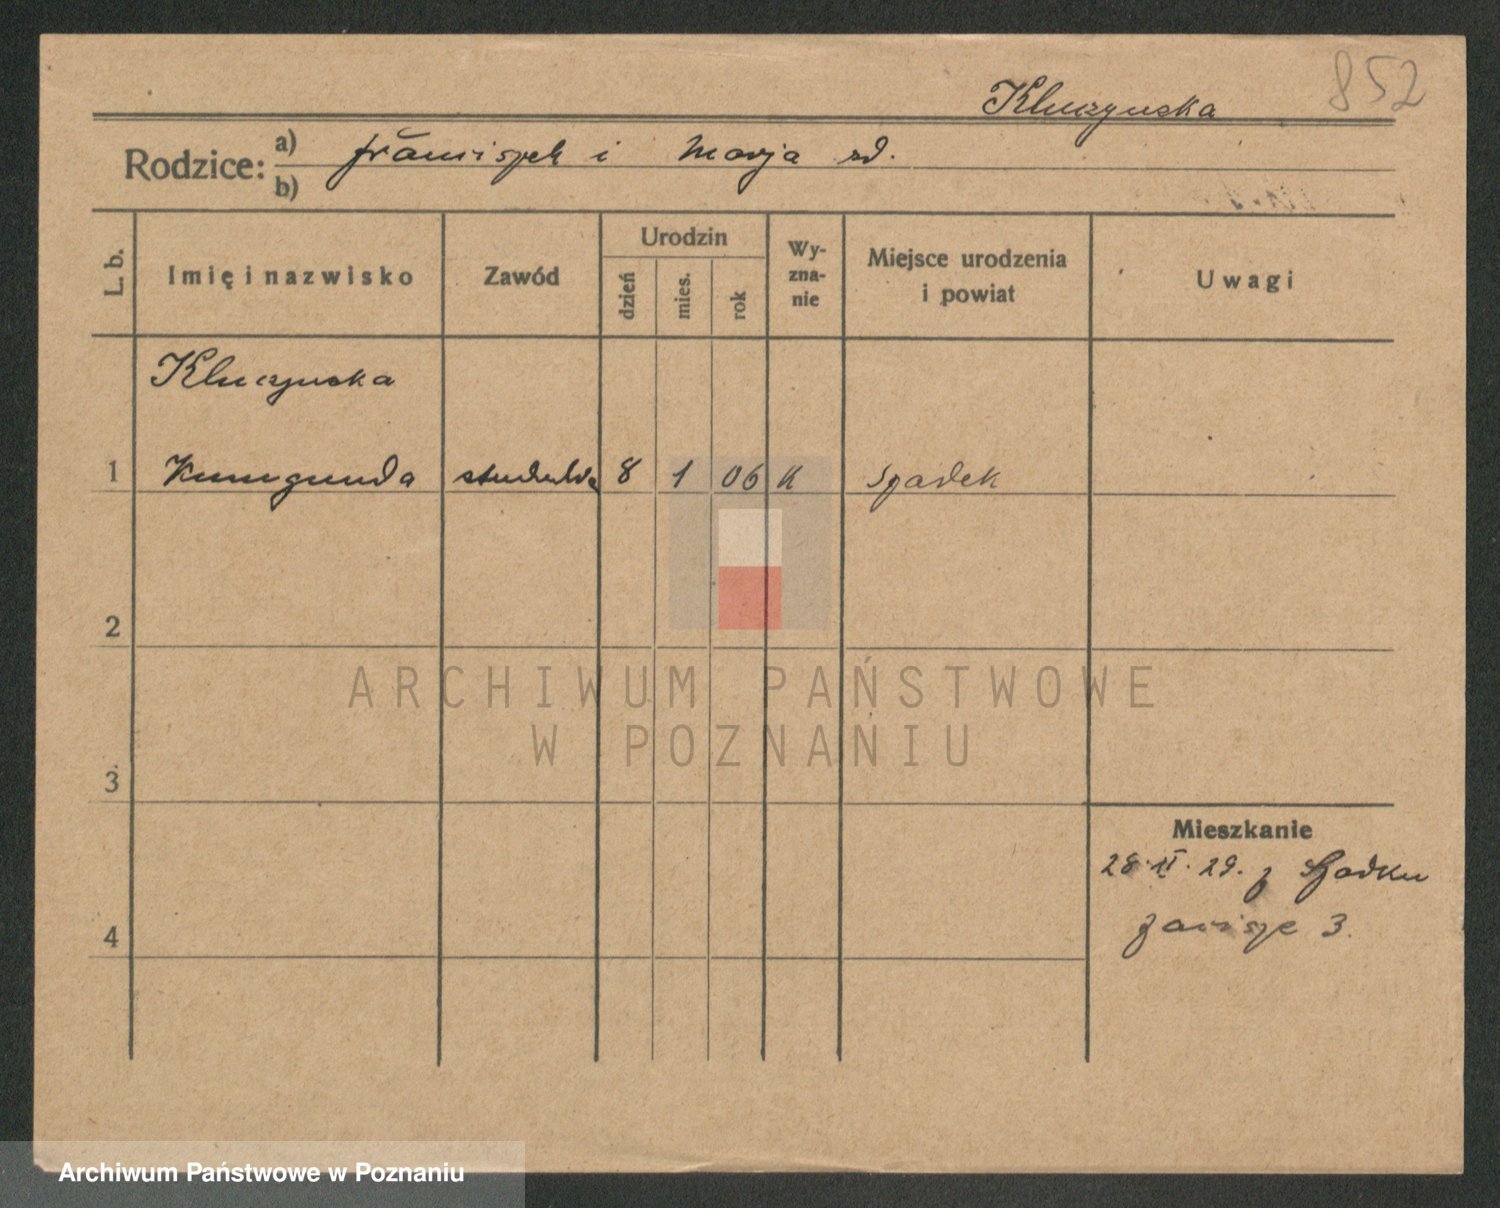 852
Kluczynska
Rodzice: a) Franciszek i Marja zd.
b)
L. b. Imię i nazwisko Zawód Urodzin dzień mies. rok Wy-zna-nie Miejsce urodzenia i powiat Uwagi
Kluczynska
1 Kunegunda studentka 8 1 06 K Szadek
2
ARCHIWUM PAŃSTWOWE
W POZNANIU
3
Mieszkanie
28. II. 29. z Szadku
4 Zacisze 3.
Archiwum Państwowe w Poznaniu